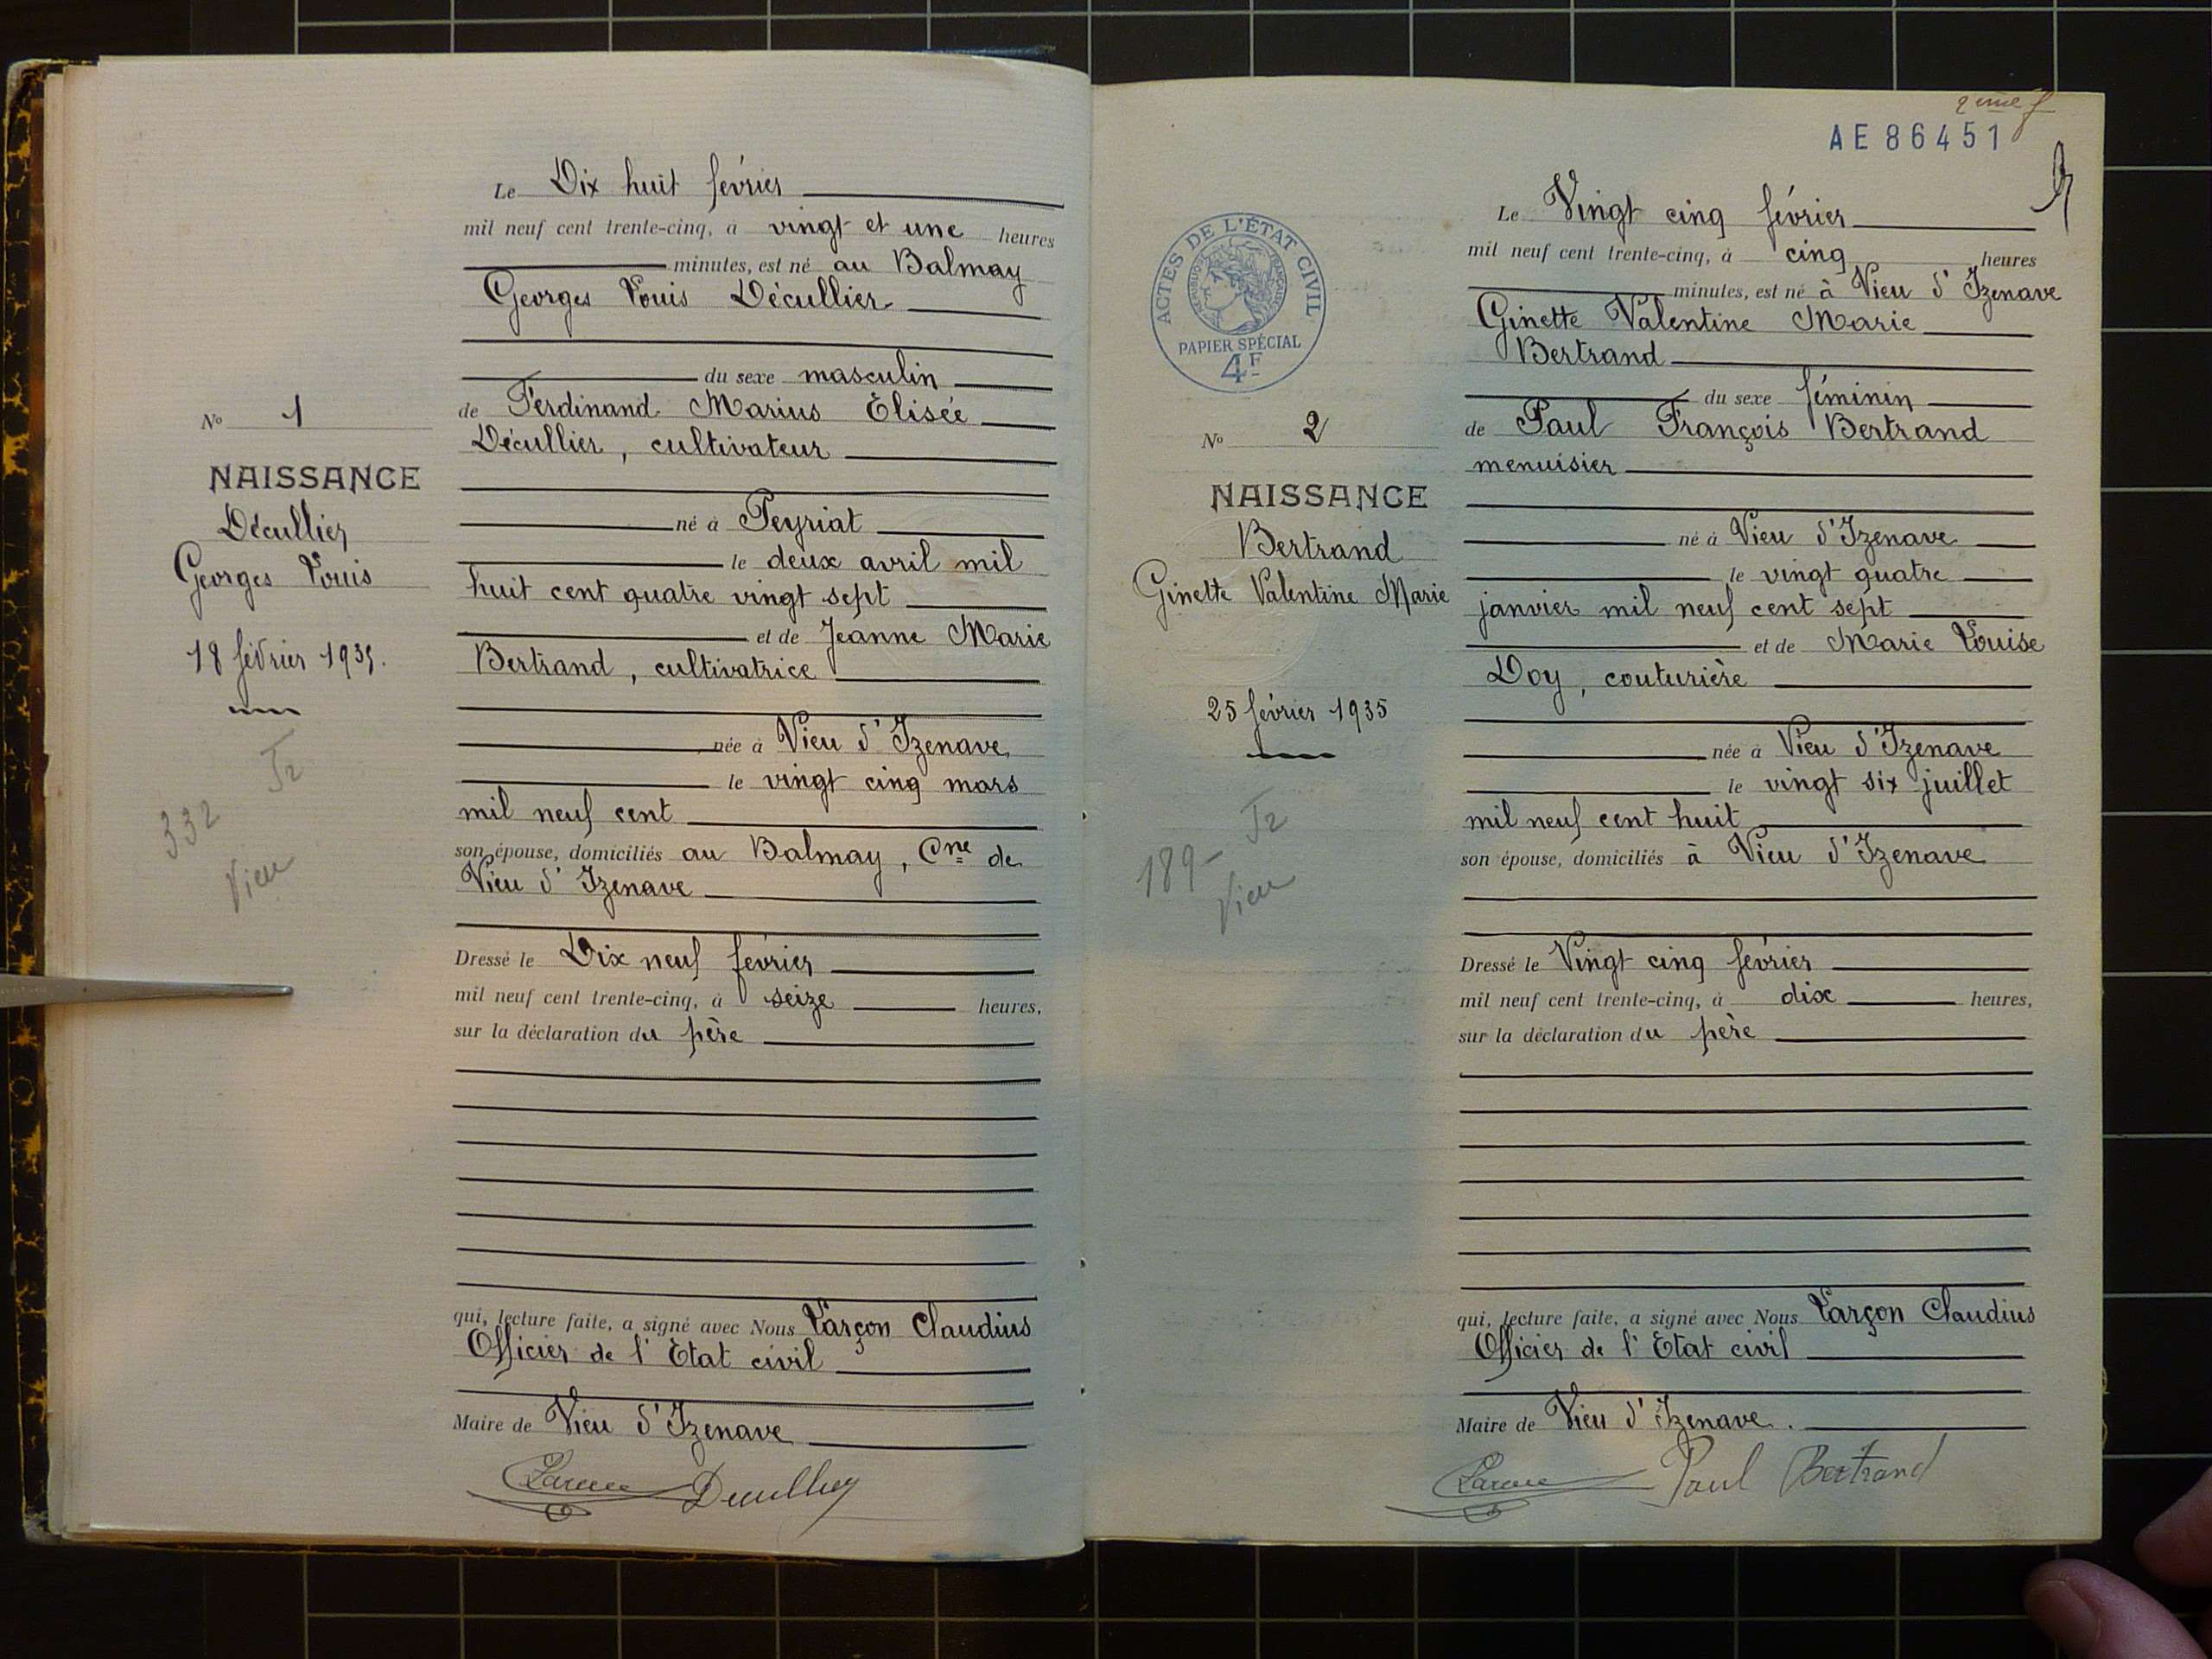 Le Dix huit février
mil neuf cent trente-cinq, à vingt et une heures
minutes, est né au Balmay
Georges Louis Décullier
du sexe masculin
de Ferdinand Marius Elisée
Décullier, cultivateur
né à Peyriat
le deux avril mil
huit cent quatre vingt sept
et de Jeanne Marie
Bertrand, cultivatrice
née à Vieu d'Izenave
le vingt cinq mars
mil neuf cent
son épouse, domiciliés au Balmay, Cne de
Vieu d'Izenave
Dressé le Dix neuf février
mil neuf cent trente-cinq, à seize heures,
sur la déclaration du père
qui, lecture faite, a signé avec Nous Larçon Claudius
Officier de l'Etat civil
Maire de Vieu d'Izenave
No 1
NAISSANCE
Décullier
Georges Louis
18 février 1935.
332
Vieu
AE 86451
ACTES DE L'ÉTAT CIVIL
RÉPUBLIQUE FRANÇAISE
PAPIER SPÉCIAL
4F
No 2
NAISSANCE
Bertrand
Ginette Valentine Marie
25 février 1935
189-
Vieu
Le Vingt cinq février
mil neuf cent trente-cinq, à cinq heures
minutes, est né à Vieu d'Izenave
Ginette Valentine Marie
Bertrand
du sexe féminin
de Paul François Bertrand
menuisier
né à Vieu d'Izenave
le vingt quatre
janvier mil neuf cent sept
et de Marie Louise
Doy, couturière
née à Vieu d'Izenave
le vingt six juillet
mil neuf cent huit
son épouse, domiciliés à Vieu d'Izenave
Dressé le Vingt cinq février
mil neuf cent trente-cinq, à dix heures,
sur la déclaration du père
qui, lecture faite, a signé avec Nous Larçon Claudius
Officier de l'Etat civil
Maire de Vieu d'Izenave.
Paul Bertrand